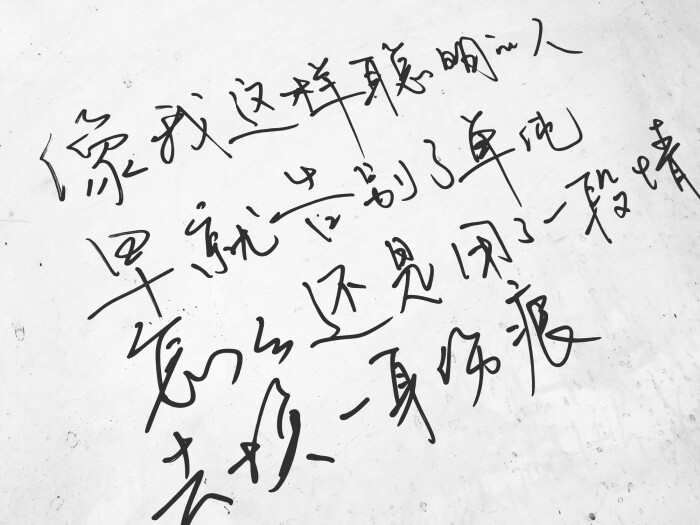 像我这样聪明的人
早就告别了单纯
怎么还是用了一段情
去换一身伤痕